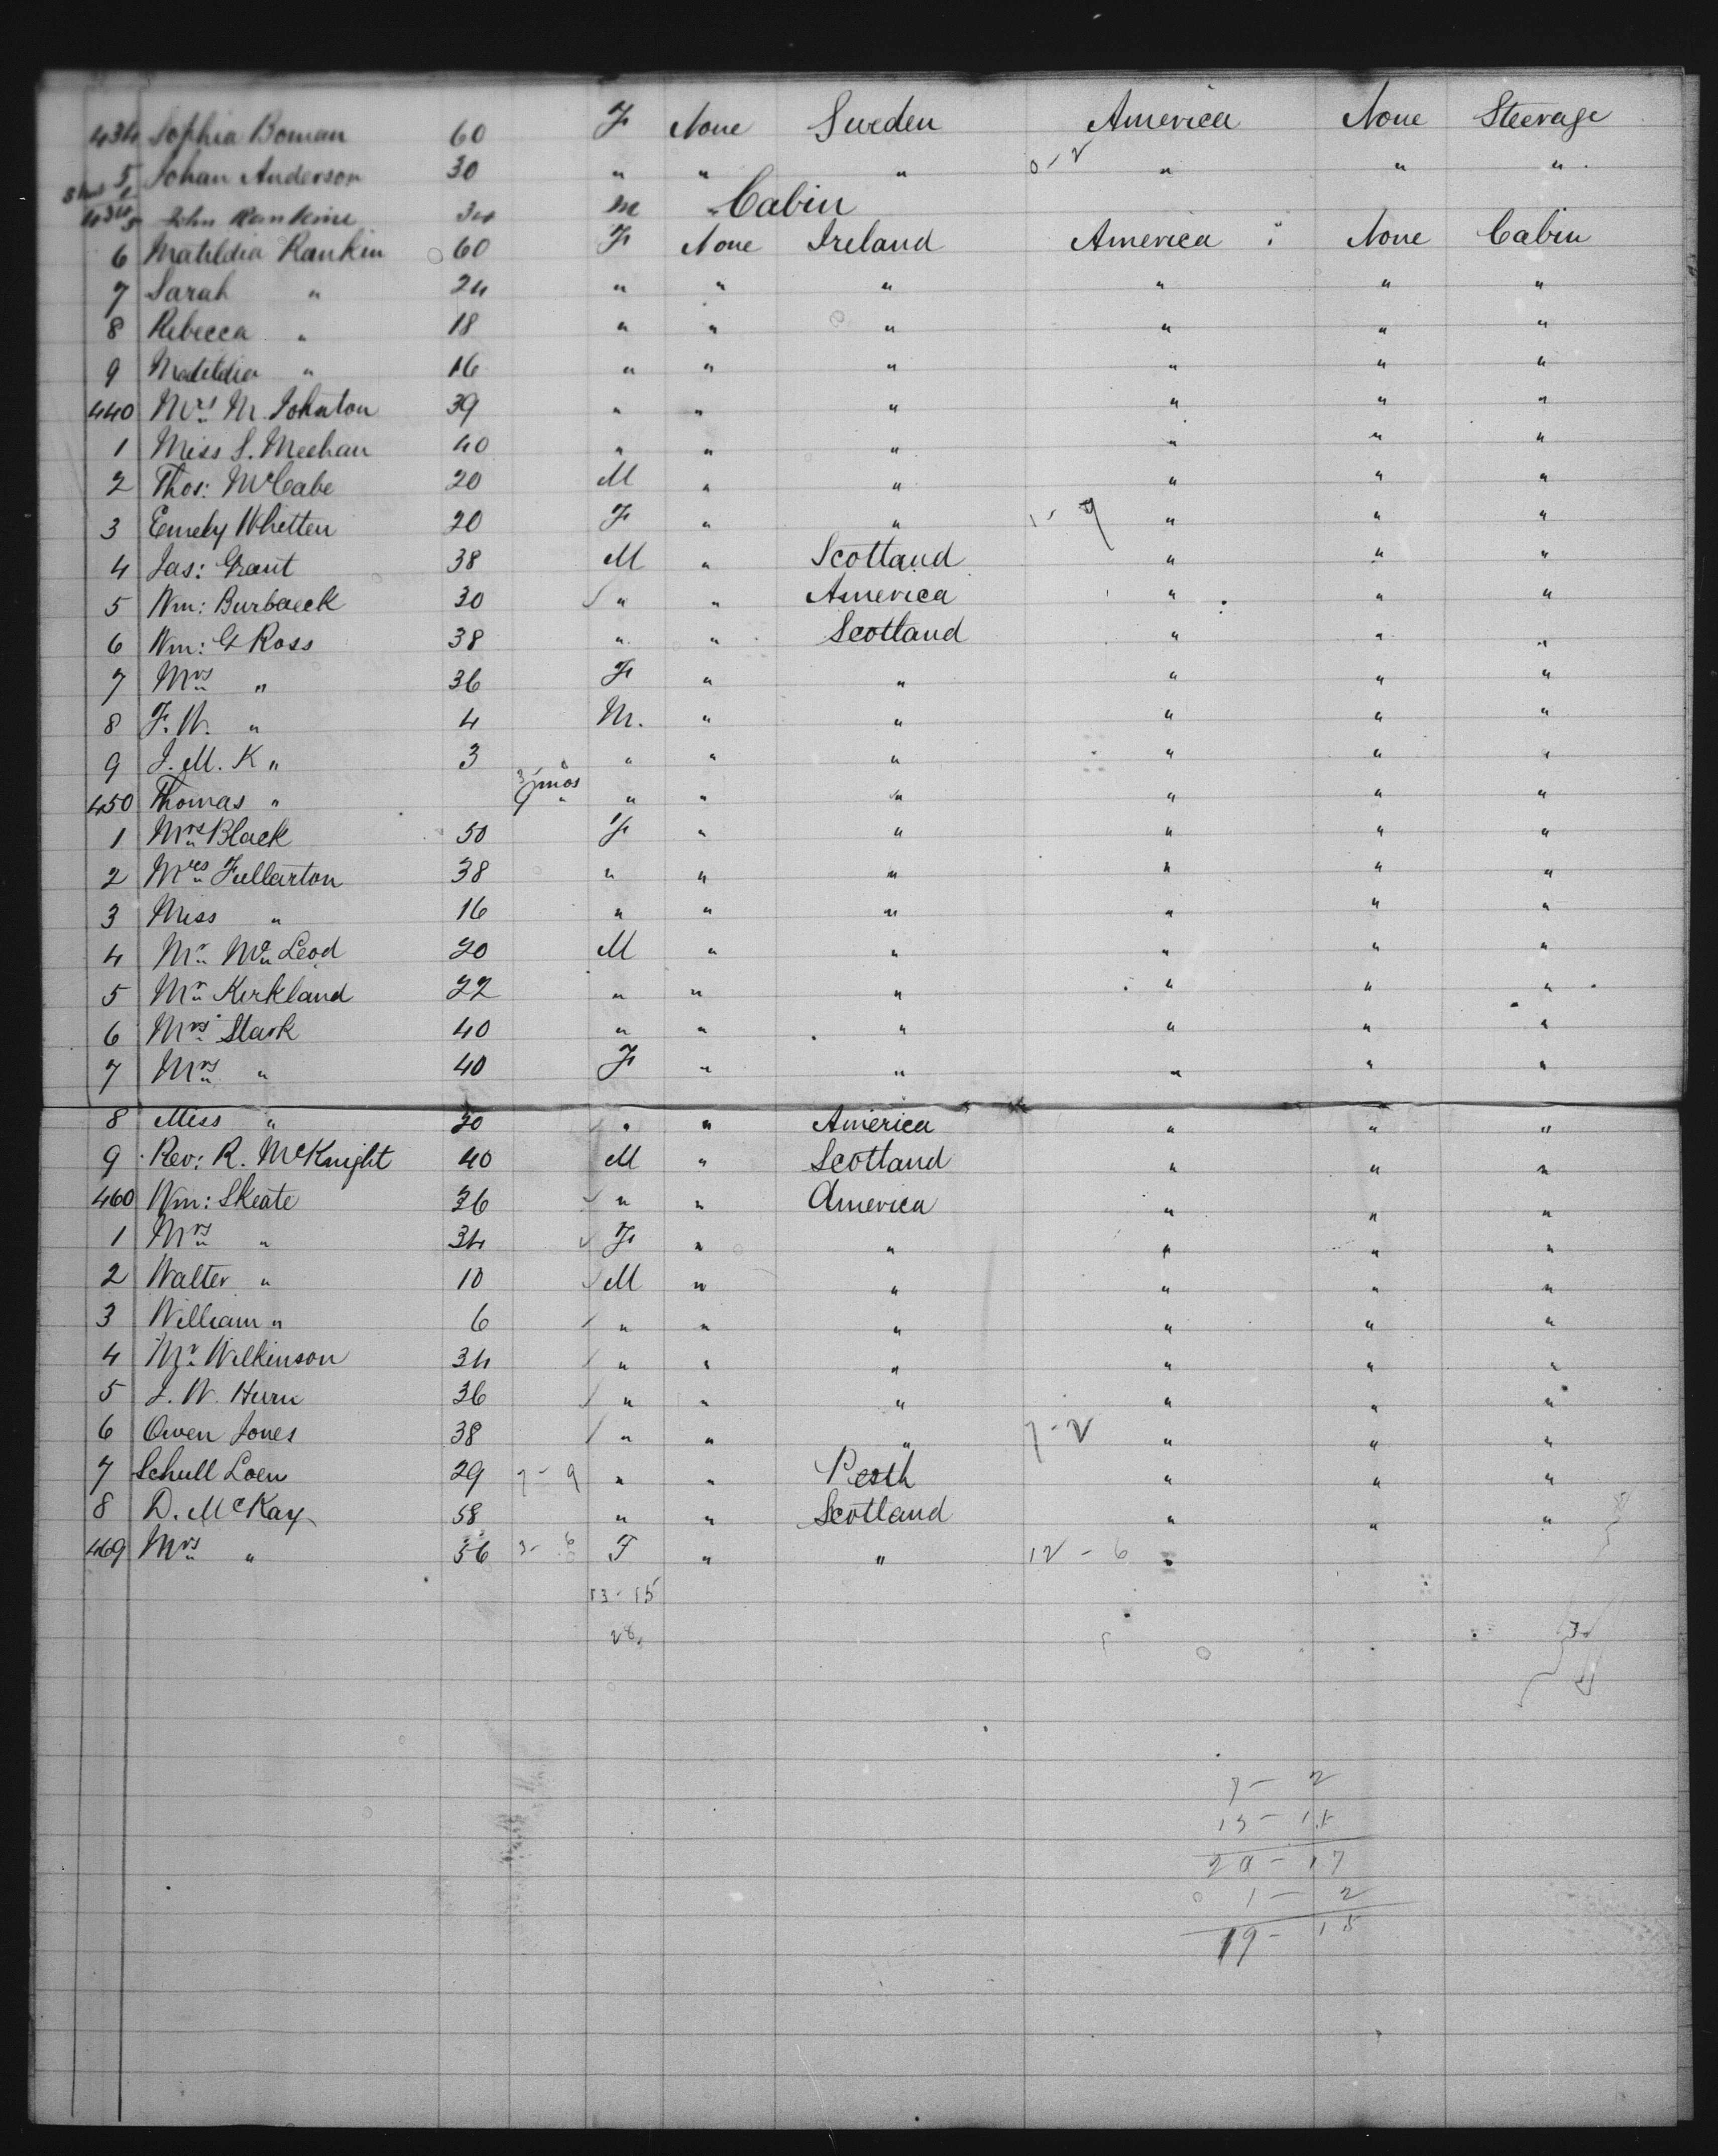 434 Sophia Boman 60 F None Sweden America None Steerage
5 Johan Anderson 30 " " " 0-2 " " "
John Rankine 34 M " Cabin
6 Matildia Rankin 60 F None Ireland America None Cabin
7 Sarah " 24 " " " " " "
8 Rebecca " 18 " " " " " "
9 Matildia " 16 " " " " " "
440 Mrs M. Johnton 39 " " " " " "
1 Miss S. Meehan 40 " " " " " "
2 Thos: McCabe 20 M " " " " "
3 Emely Whitten 20 F " " " " "
4 Jas: Grant 38 M " Scotland " " "
5 Wm: Burbaeck 30 " " America " " "
6 Wm: G Ross 38 " " Scotland " " "
7 Mrs " 36 F " " " " "
8 F. W. " 4 M. " " " " "
9 J. M. K " 3 " " " " " "
450 Thomas " 9 mos " " " " " "
1 Mrs Black 50 F " " " " "
2 Mrs Fullarton 38 " " " " " "
3 Miss " 16 " " " " " "
4 Mr McLeod 20 M " " " " "
5 Mr Kirkland 22 " " " " " "
6 Mrs Stark 40 " " " " " "
7 Mrs " 40 F " " " " "
8 Miss " 20 " " America " " "
9 Rev: R. McKnight 40 M " Scotland " " "
460 Wm: Skeate 36 " " America " " "
1 Mrs " 34 F " " " " "
2 Walter " 10 M " " " " "
3 William " 6 " " " " " "
4 Mr Wilkinson 34 " " " " " "
5 J. W. Hurn 36 " " " " " "
6 Owen Jones 38 " " " 7-2 " " "
7 Schull Loen 29 7-9 " " Pesth " " "
8 D. McKay 58 " " Scotland " " "
469 Mrs " 56 3-6 F " " 12-6 "
13-15
28
7-2
13-15
20-17
1-2
19-15